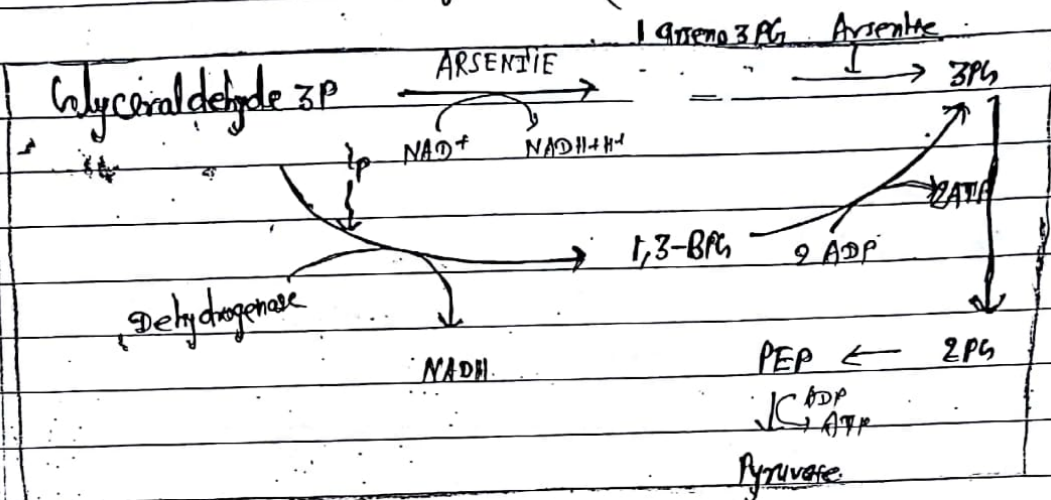 1 arseno 3 PG Arsenite
Glyceraldehyde 3P ARSENITE 3PG
NAD+ NADH+H+
ip
2ATP
1,3-BPG 2 ADP
Dehydrogenase
NADH PEP ← 2PG
ADP
ATP
Pyruvate